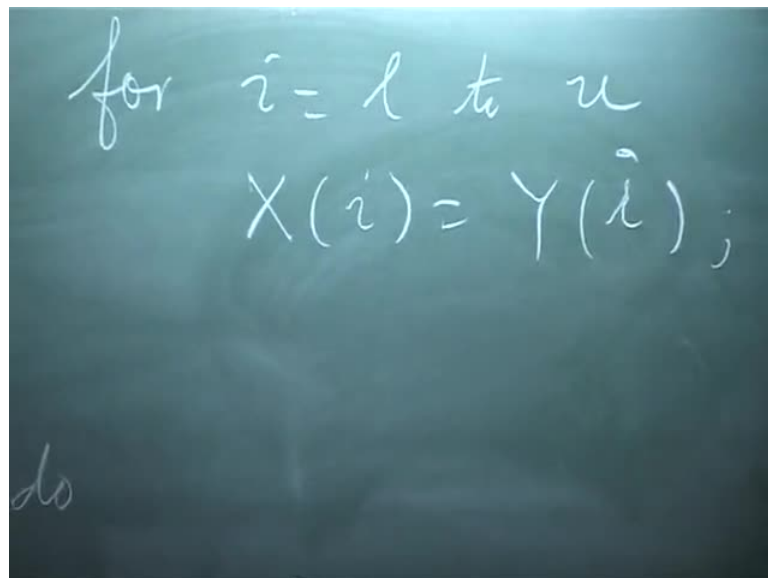 for i = l to u
X(i) = Y(i);
do